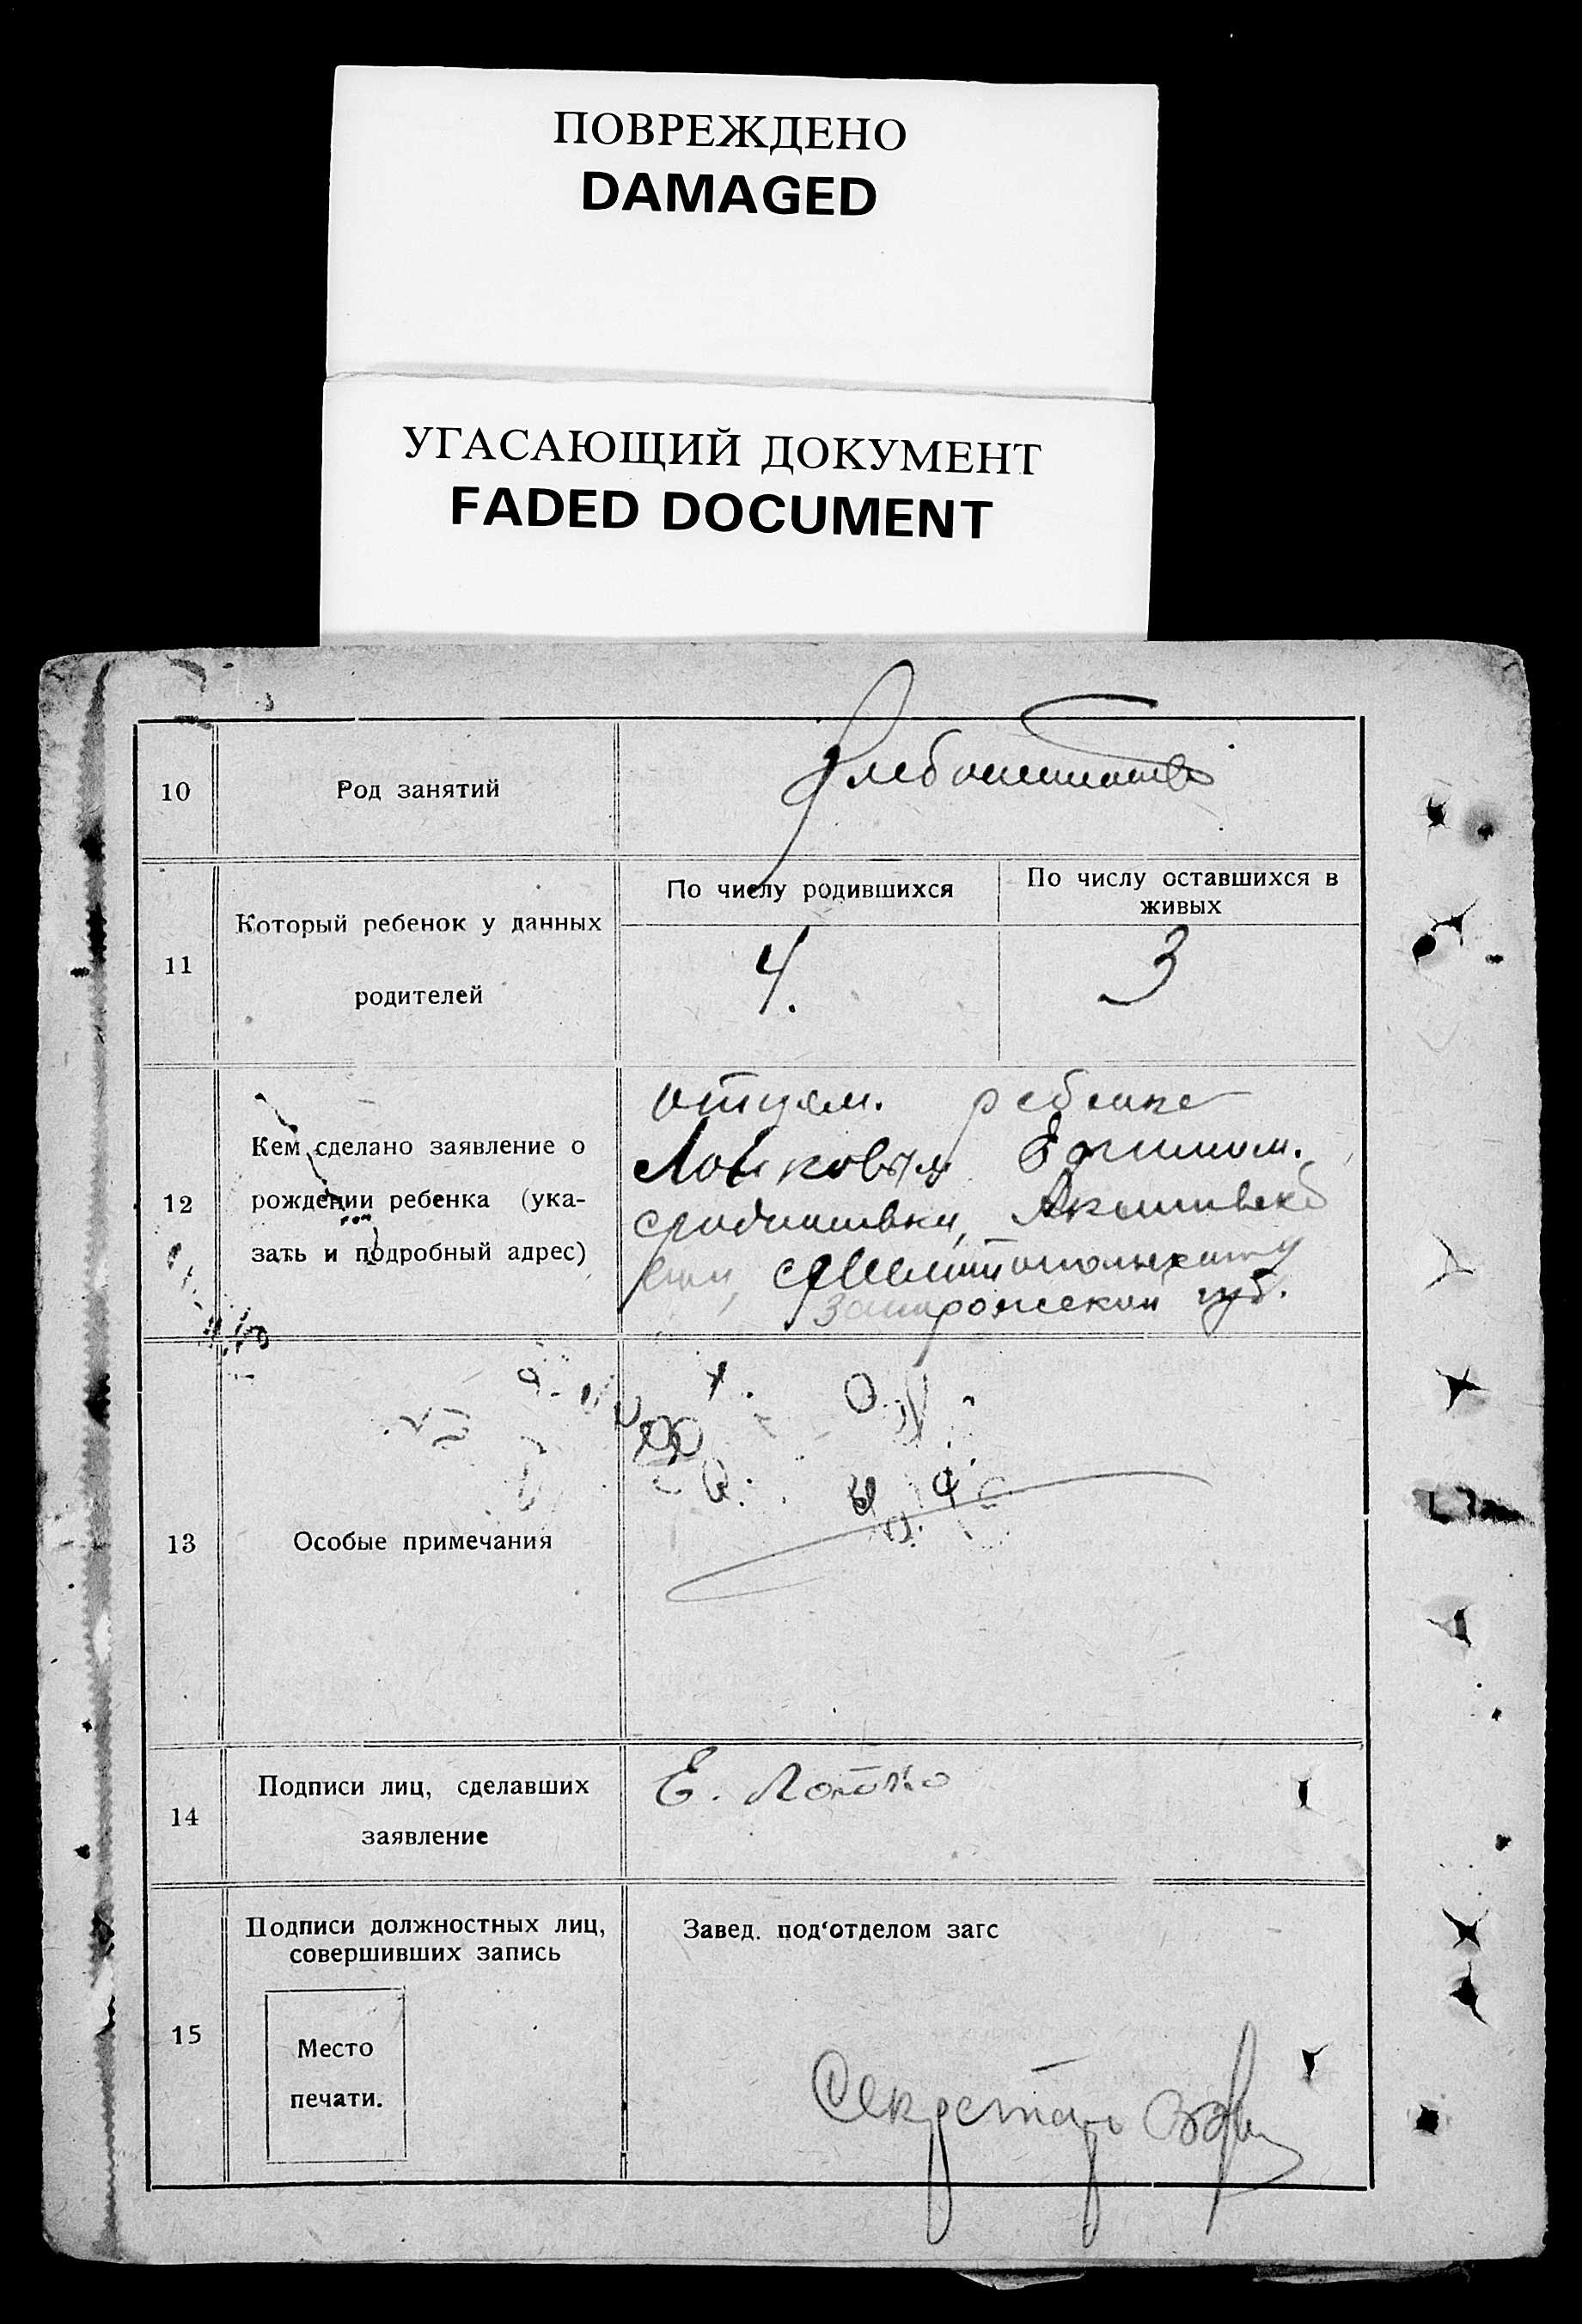 ПОВРЕЖДЕНО
DAMAGED
УГАСАЮЩИЙ ДОКУМЕНТ
FADED DOCUMENT
10
Род занятий
11
Который ребенок у данных
родителей
По числу родившихся
4.
По числу оставшихся в
живых
3
12
Кем сделано заявление о
рождении ребенка (ука-
зать и подробный адрес)
отцем. ребенка
Запорожской губ.
13
Особые примечания
14
Подписи лиц, сделавших
заявление
Е. Лойко
15
Подписи должностных лиц,
совершивших запись
Место
печати.
Завед. под‘отделом загс
Секретарь